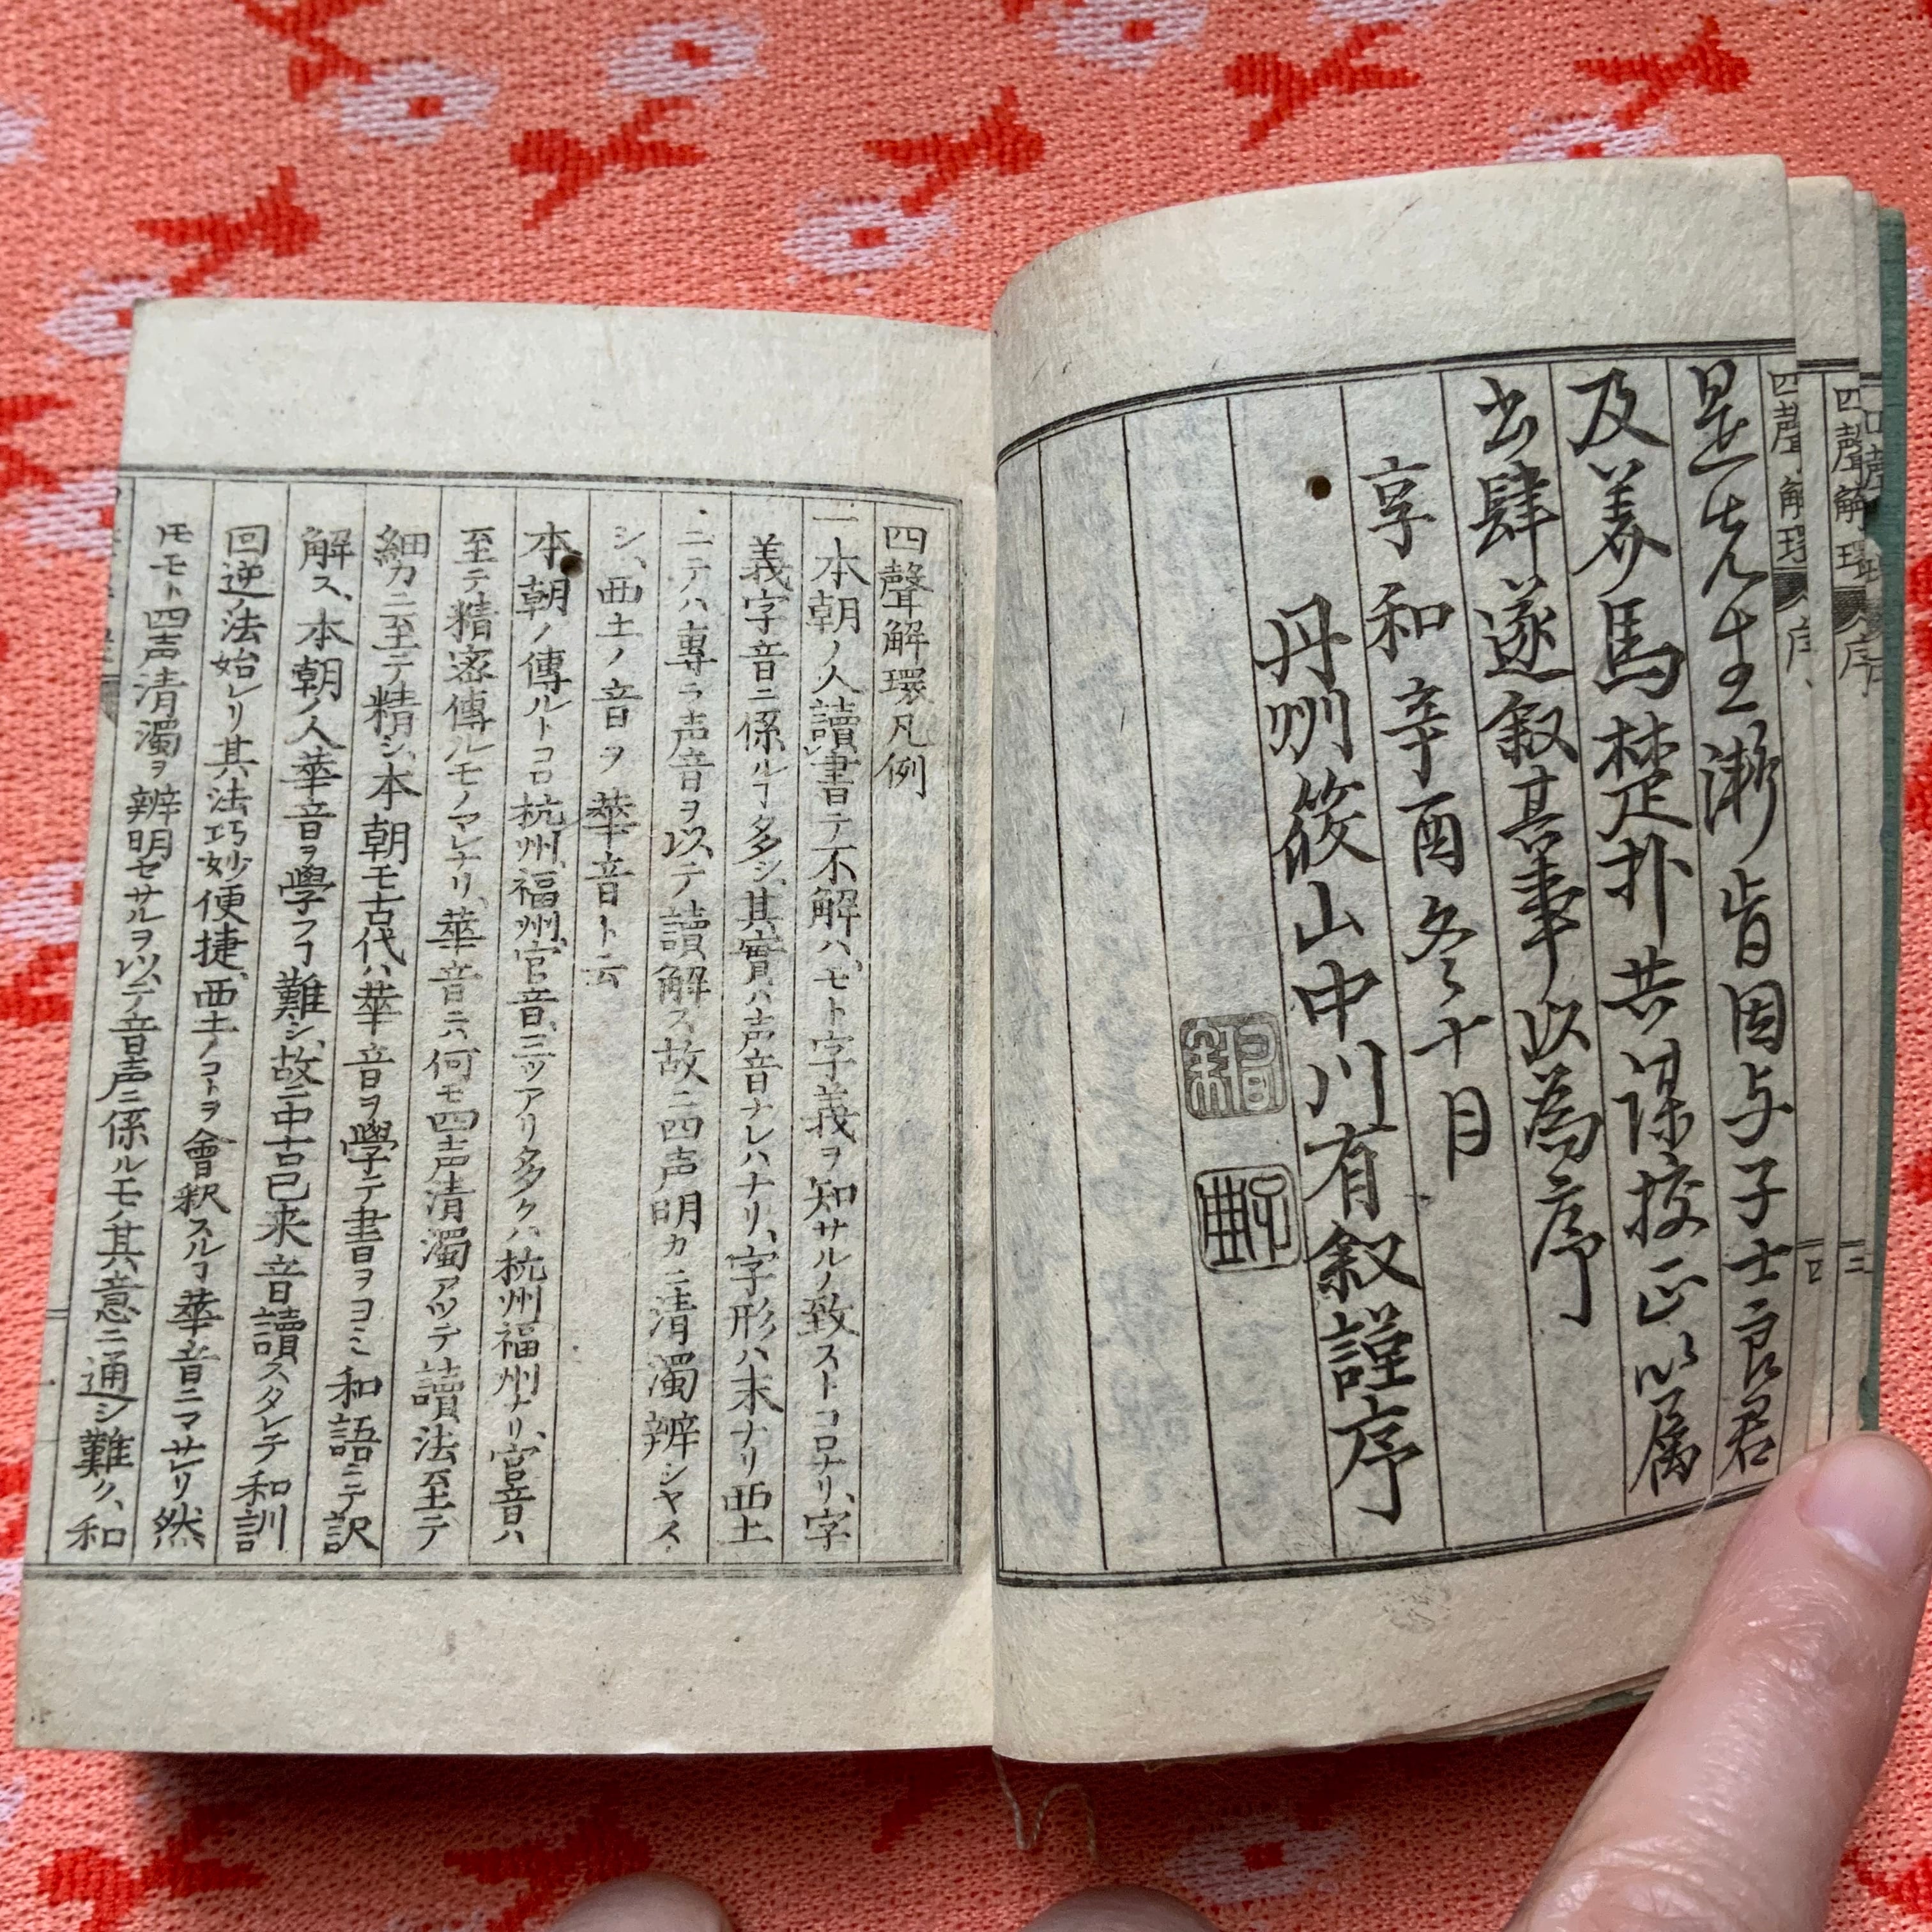 四聲解環 序 三
四聲解環 序 四
是先生漸皆因与子士良君
及養馬楚扑共謀挍正以属
書肆遂叙其事以為序
享和辛酉冬十月
丹州篠山中川有叙謹序
四聲解環凡例
一本朝ノ人讀書テ不解ハ、モト字義ヲ知サルノ致ストコロナリ、字
義字音ニ係ルヿ多シ、其實ハ声音ナレハナリ、字形ハ末ナリ西土
ニテハ專ラ声音ヲ以テ讀解ス故ニ四声明カニ清濁辨シヤス
シ、西土ノ音ヲ華音ト云
本朝ノ傳ルトコロ杭州、福州、官音、三ツアリ多クハ杭州福州ナリ、官音ハ
至テ精密傳ルモノマレナリ、華音ニハ何モ四声清濁アツテ讀法至テ
細カニ至テ精シ、本朝モ古代ハ華音ヲ學テ書ヲヨミ和語ニテ訳
解ス、本朝ノ人華音ヲ學フヿ難シ、故ニ中古已来音讀スタレテ和訓
回逆ノ法始レリ其法巧妙便捷、西土ノコトヲ會釈スルヿ華音ニマサレリ然
𪜈モト四声清濁ヲ辨明セサルヲ以テ音声ニ係ルモノ其意ニ通シ難ク、和